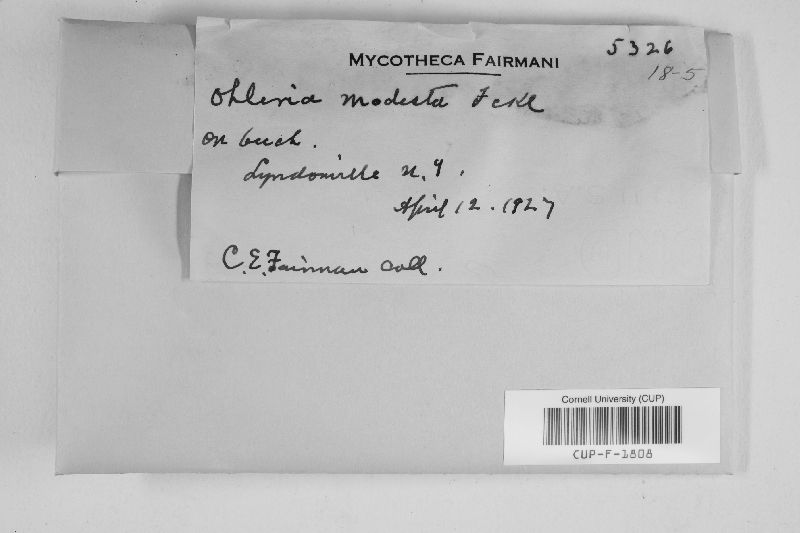 MYCOTHECA FAIRMANI
5326
18-5
Ohleria modesta Fckl
on beech.
Lyndonville N.Y.
April 12. 1927
C.E. Fairman Coll.
Cornell University (CUP)
CUP-F-1808